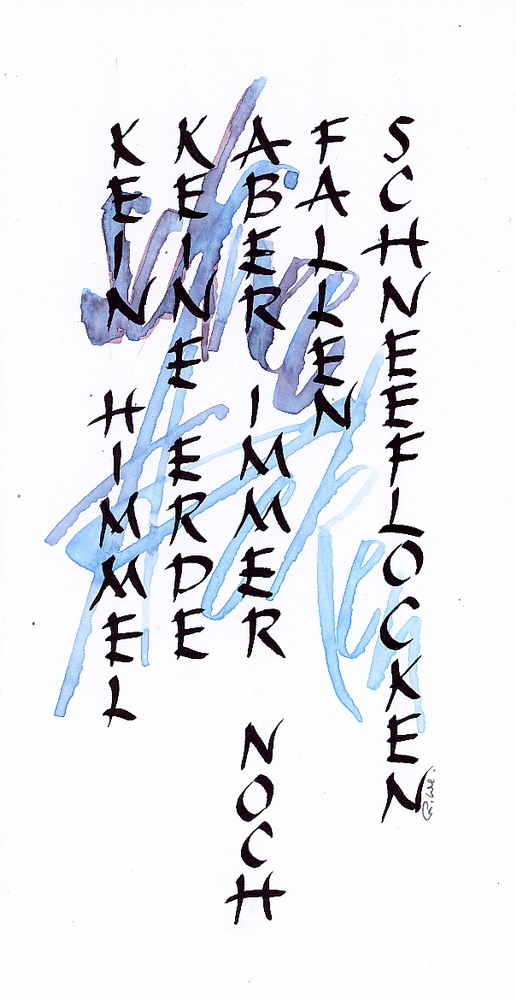 KEIN HIMMEL
KEINE ERDE
ABER IMMER NOCH
FALLEN
SCHNEEFLOCKEN
R.We.